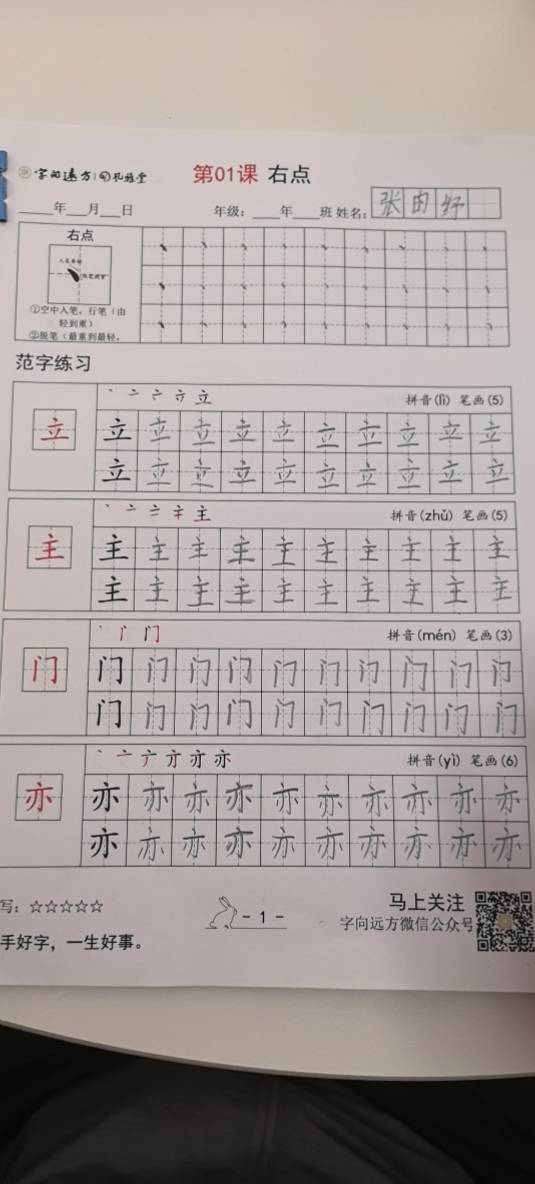 字向远方 孔雅堂
第01课 右点
年 月 日 年级: 年 班 姓名: 张由好
右点
①空中入笔,行笔(由
轻到重)
②提笔(最重到最轻,
范字练习
丶 亠 立 拼音(lì) 笔画(5)
立 立 立 立 立 立 立 立 立 立 立
立 立 立 立 立 立 立 立 立 立
丶 亠 主 拼音(zhǔ) 笔画(5)
主 主 主 主 主 主 主 主 主 主 主
主 主 主 主 主 主 主 主 主 主
丶 门 拼音(mén) 笔画(3)
门 门 门 门 门 门 门 门 门 门 门
门 门 门 门 门 门 门 门 门 门
丶 亠 亦 拼音(yì) 笔画(6)
亦 亦 亦 亦 亦 亦 亦 亦 亦 亦 亦
亦 亦 亦 亦 亦 亦 亦 亦 亦 亦
写: ☆☆☆☆☆
- 1 -
马上关注
字向远方微信公众号
手好字,一生好事。